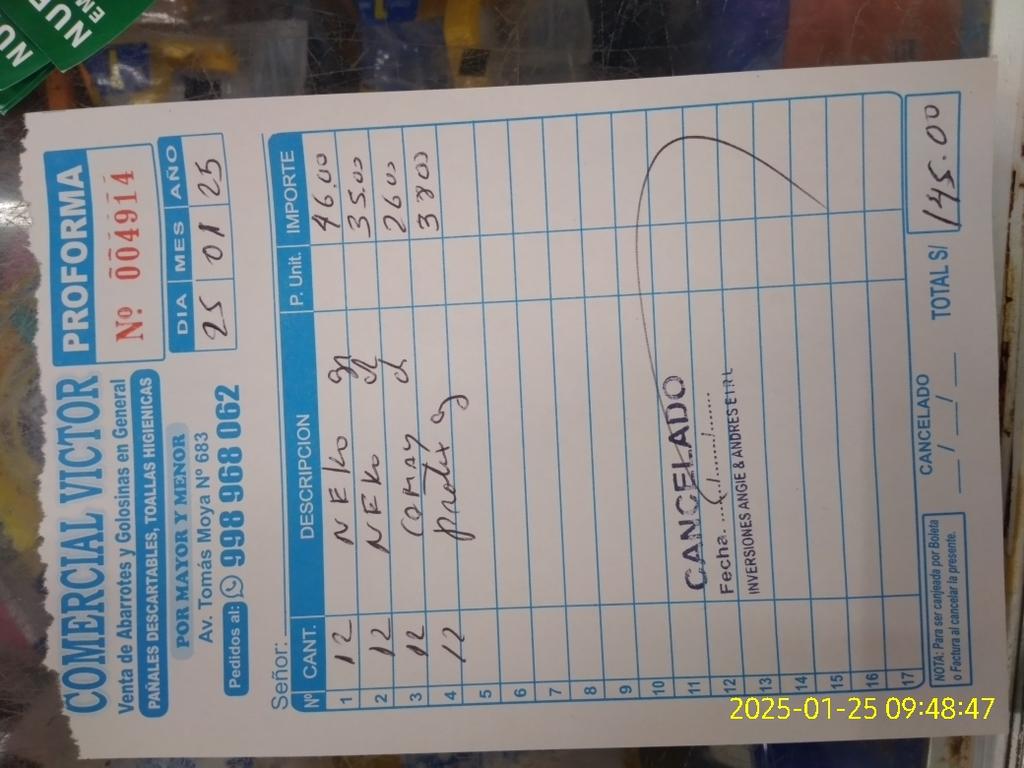 NUE
EM
NUE
COMERCIAL VICTOR
Venta de Abarrotes y Golosinas en General
PAÑALES DESCARTABLES, TOALLAS HIGIENICAS
POR MAYOR Y MENOR
Av. Tomás Moya N° 683
Pedidos al: 998 968 062
PROFORMA
Nº 004914
DIA MES AÑO
25 01 25
Señor:
Nº CANT. DESCRIPCION P. Unit. IMPORTE
1 12 NEKO gn 46.00
2 12 NEKO 35.00
3 12 26.00
4 12 protex g 38.00
5
6
7
8
9
10
11
12
13
14
15
16
17
CANCELADO
Fecha.../.../...
INVERSIONES ANGIE & ANDRES E I R L
NOTA: Para ser canjeada por Boleta
o Factura al cancelar la presente.
CANCELADO
__ / __ / __
TOTAL S/ 145.00
2025-01-25 09:48:47